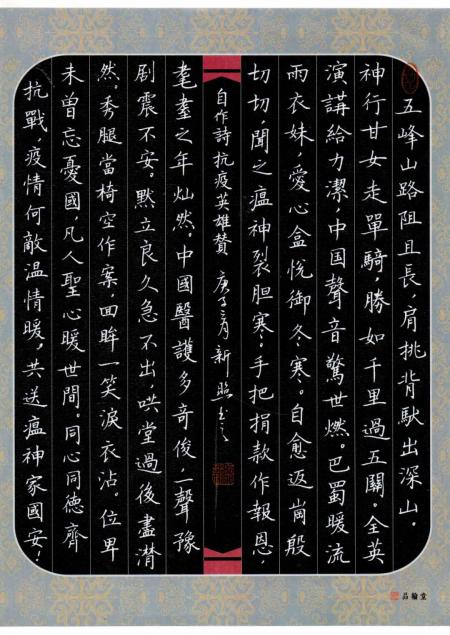 五峰山路阻且長，肩挑背馱出深山。
神行甘女走單騎，勝如千里過五關。全英
演講給力潔，中国聲音驚世燃。巴蜀暖流
雨衣妹，愛心盒悦御冬寒。自愈返崗殷
切切，聞之瘟神裂胆寒；手把捐款作報恩，
自作詩抗疫英雄贊 庚子二月 新
耄耋之年灿然。中國醫護多奇俊，一聲豫
劇震不安。黙立良久急不出，哄堂過後盡潸
然。秀腿當椅空作案，回眸一笑淚衣沾。位卑
未曾忘憂國，凡人聖心暖世間。同心同德齊
抗戰，疫情何敵温情暖。共送瘟神家國安！
品翰堂